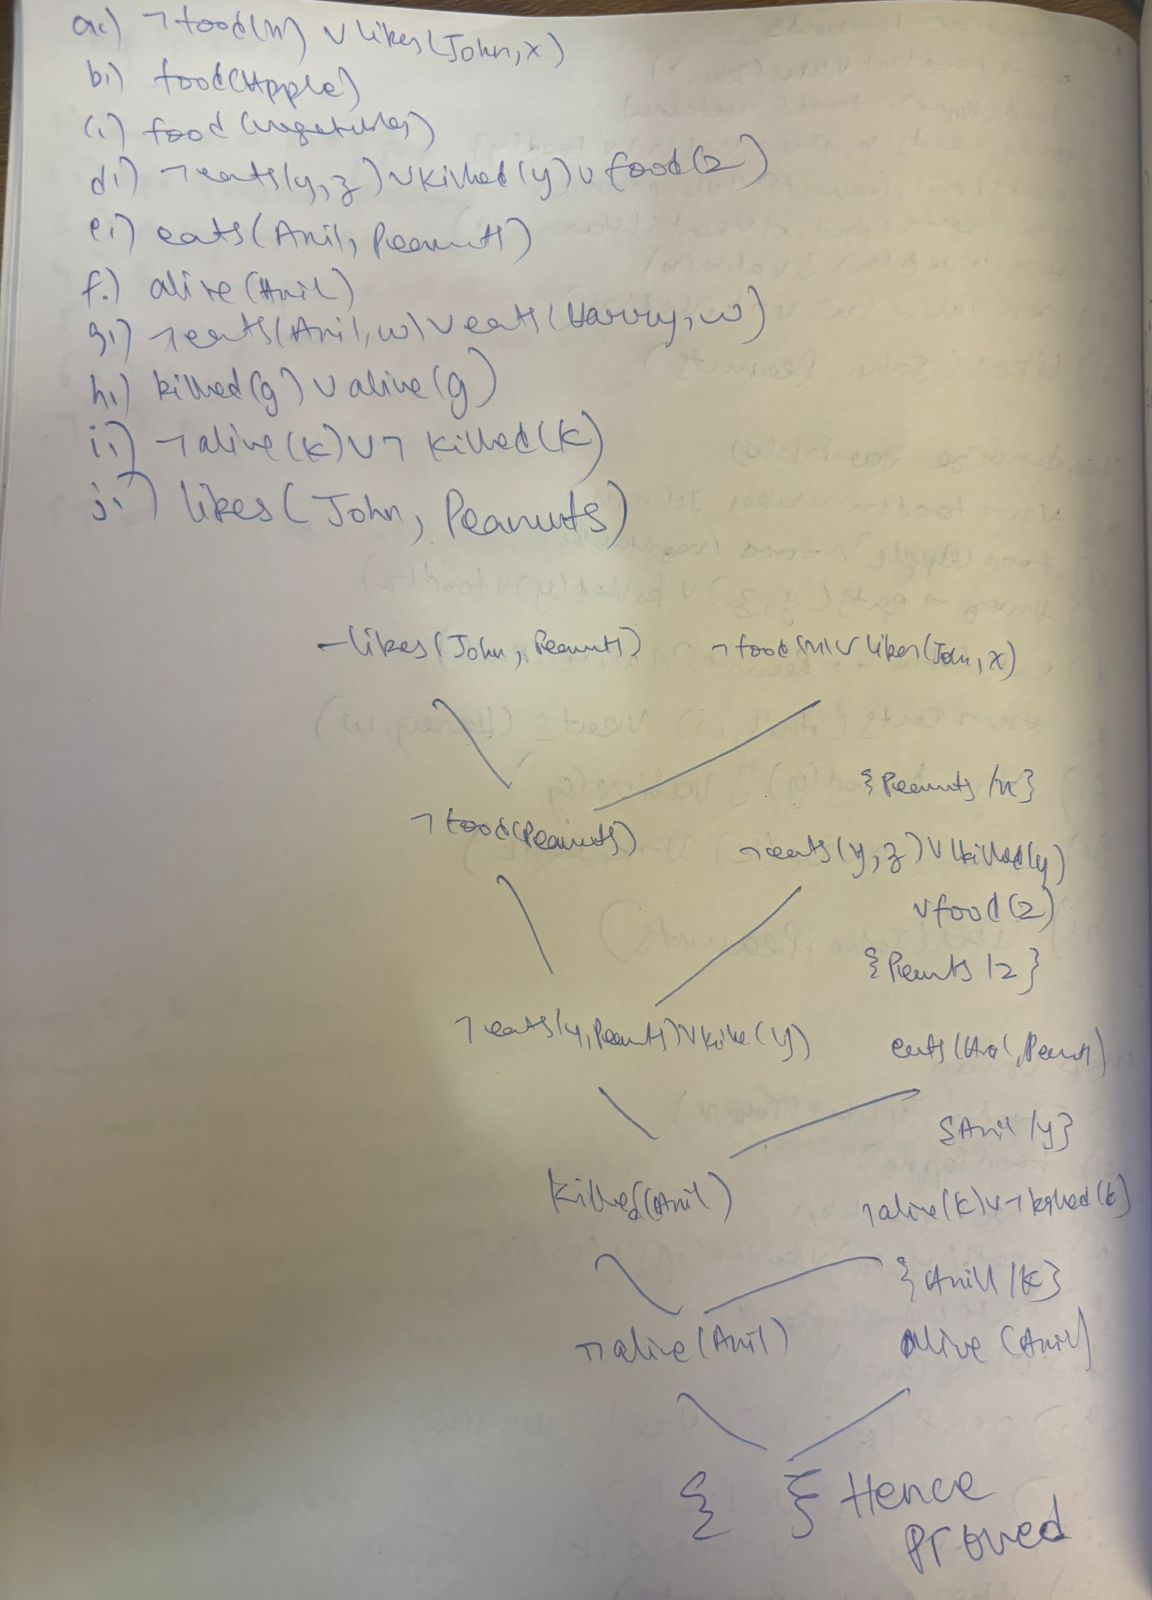 a.) ¬food(x) ∨ likes(John, x)
b.) food(Apple)
c.) food(vegetables)
d.) ¬eats(y, z) ∨ killed(y) ∨ food(z)
e.) eats(Anil, Peanuts)
f.) alive(Anil)
g.) ¬eats(Anil, w) ∨ eats(Harry, w)
h.) killed(g) ∨ alive(g)
i.) ¬alive(k) ∨ ¬ killed(k)
j.) likes(John, Peanuts)
¬likes(John, Peanuts) ¬food(x) ∨ likes(John, x)
{Peanuts /x}
¬food(Peanuts)
¬eats(y, z) ∨ killed(y)
∨ food(z)
{Peanuts /z}
¬eats(y, Peanuts) ∨ kille(y) eats(Anil, Peanut)
{Anil /y}
killed(Anil) ¬alive(k) ∨ ¬killed(k)
{Anil /k}
¬alive(Anil) alive (Anil)
{ } Hence
Proved